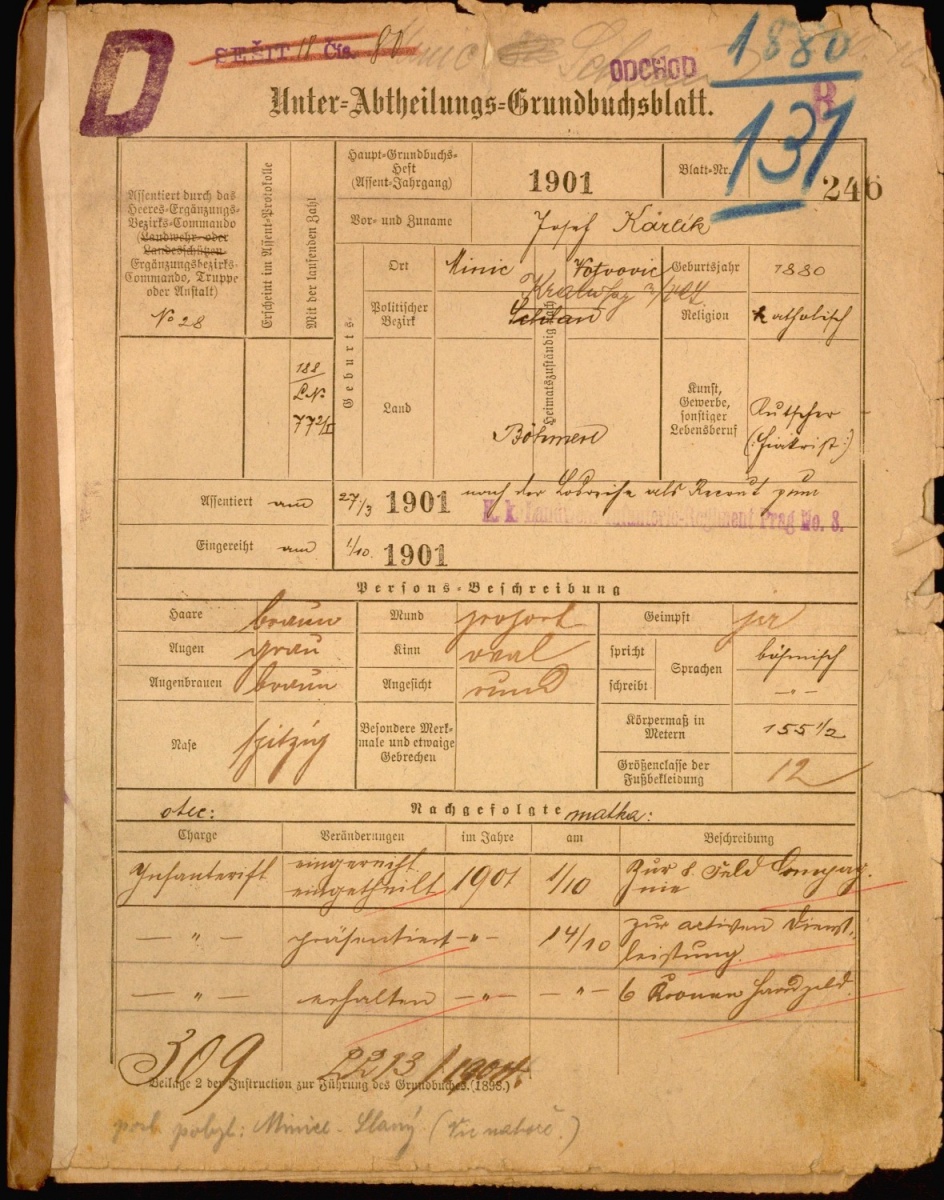 D
SEŠIT 18 Čís. 80
ODCHOD
1880
R
131
Unter-Abtheilungs-Grundbuchsblatt.
Assentiert durch das
Heeres-Ergänzungs-
Bezirks-Commando
(Landwehr- oder
Landesschützen-
Ergänzungsbezirks-
Commando, Truppe
oder Anstalt)
No 28
Erscheint im Assent-Protokolle
Mit der laufenden Zahl
188
L.No
772/II
Haupt-Grundbuchs-
Heft
(Assent-Jahrgang)
1901
Blatt-Nr.
246
Vor- und Zuname
Josef Kárlík
Geburts-
Ort
Minic
Heimatszuständig nach
Votvovic
Geburtsjahr
1880
Politischer
Bezirk
Schlan
Religion
katholisch
Land
Böhmen
Kunst,
Gewerbe,
sonstiger
Lebensberuf
Kutscher
(:Fiakrist:)
Assentiert am 27/3 1901 nach der Losreihe als Recrut zum
K. k. Landwehr-Infanterie-Regiment Prag No. 8.
Eingereiht am 1/10. 1901
Persons-Beschreibung
Haare braun
Mund
Geimpft ja
Augen grau
Kinn oval
spricht
Sprachen
böhmisch
Augenbrauen braun
Angesicht rund
schreibt
-"-
Nase spitzig
Besondere Merk-
male und etwaige
Gebrechen
Körpermaß in
Metern
155 1/2
Größenclasse der
Fußbekleidung
12
otec: Nachgefolgte matka:
Charge Veränderungen im Jahre am Beschreibung
Infanterist eingereiht eingetheilt 1901 1/10 Zur 8. Feld Compag-
nie
— " — präsentiert -"- 14/10 zur activen Dienst-
leistung.
— " — erhalten -"- -"- 6 Kronen Handgeld.
309 2213/1904
Beilage 2 der Instruction zur Führung des Grundbuches. (1898.)
posl. pobyt: Minice - Slaný (Viz nahoře.)